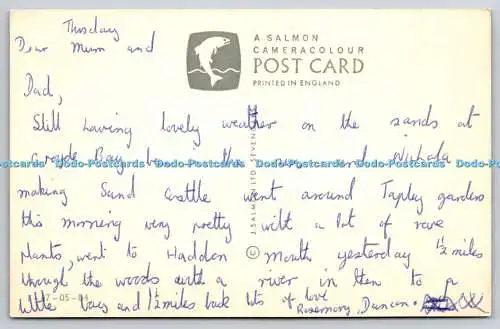 Thursday
A SALMON
CAMERACOLOUR
POST CARD
PRINTED IN ENGLAND
Dear Mum and
Dad,
Still having lovely weather on the sands at
Croyde Bay and Nichola
Dodo-Postcards Dodo-Postcards Dodo-Postcards Dodo-Postcards
making Sand castle went around Tapley gardens
this morning very pretty with a lot of rare
plants, went to Haddon mouth yesterday 1½ miles
through the woods with a river in then to a
little bay and 1½ miles back lots of love
Rosemary, Duncan
© J. SALMON LTD